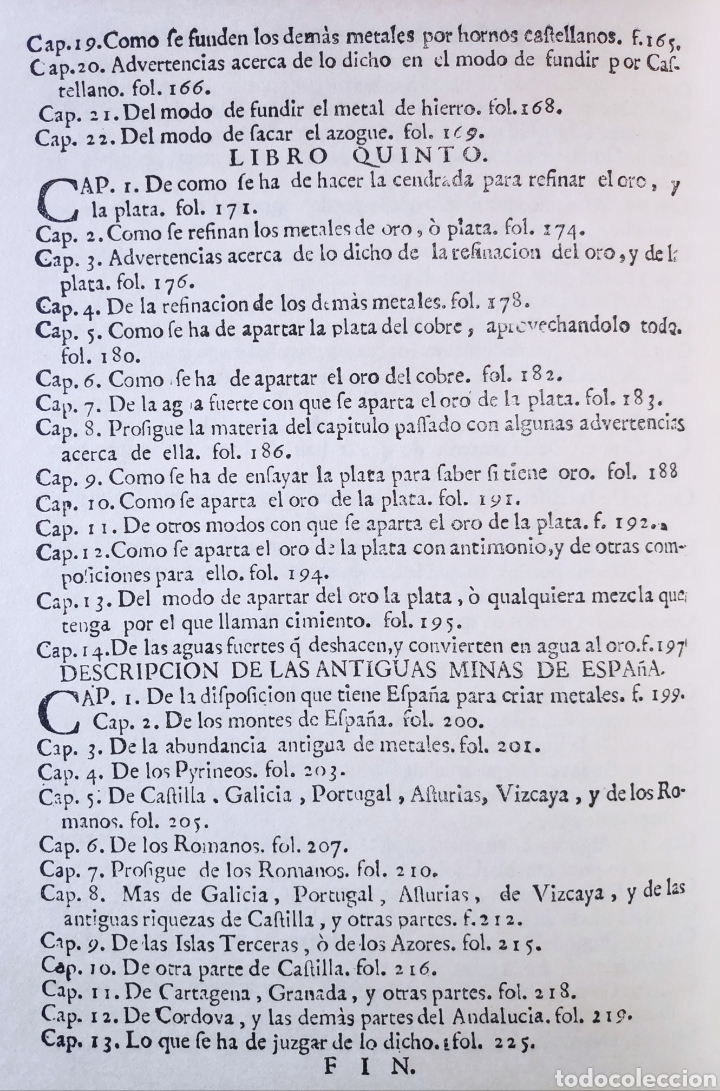 Cap.19.Como ſe funden los demàs metales por hornos caſtellanos. f.165.
Cap.20. Advertencias acerca de lo dicho en el modo de fundir por Caſ-
tellano. fol. 166.
Cap. 21. Del modo de fundir el metal de hierro. fol.168.
Cap. 22. Del modo de ſacar el azogue. fol. 169.
LIBRO QUINTO.
CAP. 1. De como ſe ha de hacer la cendrada para refinar el oro, y
la plata. fol. 171.
Cap. 2. Como ſe refinan los metales de oro, ò plata. fol. 174.
Cap. 3. Advertencias acerca de lo dicho de la refinacion del oro, y de la
plata. fol. 176.
Cap. 4. De la refinacion de los demàs metales. fol. 178.
Cap. 5. Como ſe ha de apartar la plata del cobre, aprovechandolo todo.
fol. 180.
Cap. 6. Como ſe ha de apartar el oro del cobre. fol. 182.
Cap. 7. De la agua fuerte con que ſe aparta el oro de la plata. fol. 183.
Cap. 8. Proſigue la materia del capitulo paſſado con algunas advertencias
acerca de ella. fol. 186.
Cap. 9. Como ſe ha de enſayar la plata para ſaber ſi tiene oro. fol. 188
Cap. 10. Como ſe aparta el oro de la plata. fol. 191.
Cap. 11. De otros modos con que ſe aparta el oro de la plata. f. 192.
Cap.12.Como ſe aparta el oro de la plata con antimonio, y de otras com-
poſiciones para ello. fol. 194.
Cap. 13. Del modo de apartar del oro la plata, ò qualquiera mezcla que
tenga por el que llaman cimiento. fol. 195.
Cap. 14.De las aguas fuertes q̃ deshacen, y convierten en agua al oro.f.197
DESCRIPCION DE LAS ANTIGUAS MINAS DE ESPAñA.
CAP. 1. De la diſpoſicion que tiene Eſpaña para criar metales. f. 199.
Cap. 2. De los montes de Eſpaña. fol. 200.
Cap. 3. De la abundancia antigua de metales. fol. 201.
Cap. 4. De los Pyrineos. fol. 203.
Cap. 5. De Caſtilla. Galicia, Portugal, Aſturias, Vizcaya, y de los Ro-
manos. fol. 205.
Cap. 6. De los Romanos. fol. 207.
Cap. 7. Proſigue de los Romanos. fol. 210.
Cap. 8. Mas de Galicia, Portugal, Aſturias, de Vizcaya, y de las
antiguas riquezas de Caſtilla, y otras partes. f.212.
Cap. 9. De las Islas Terceras, ò de los Azores. fol. 215.
Cap. 10. De otra parte de Caſtilla. fol. 216.
Cap. 11. De Cartagena, Granada, y otras partes. fol. 218.
Cap. 12. De Cordova, y las demàs partes del Andalucia. fol. 219.
Cap. 13. Lo que ſe ha de juzgar de lo dicho. fol. 225.
F I N.
todocoleccion